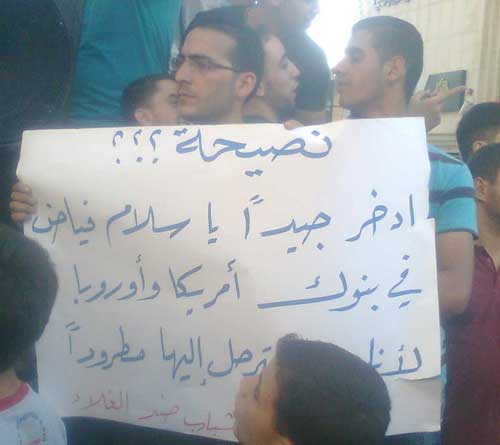 نصيحة ؟؟؟
ادخر جيداً يا سلام فياض
في بنوك أمريكا وأوروبا
ترحل إليها مطروداً
شباب ضد الغلاء